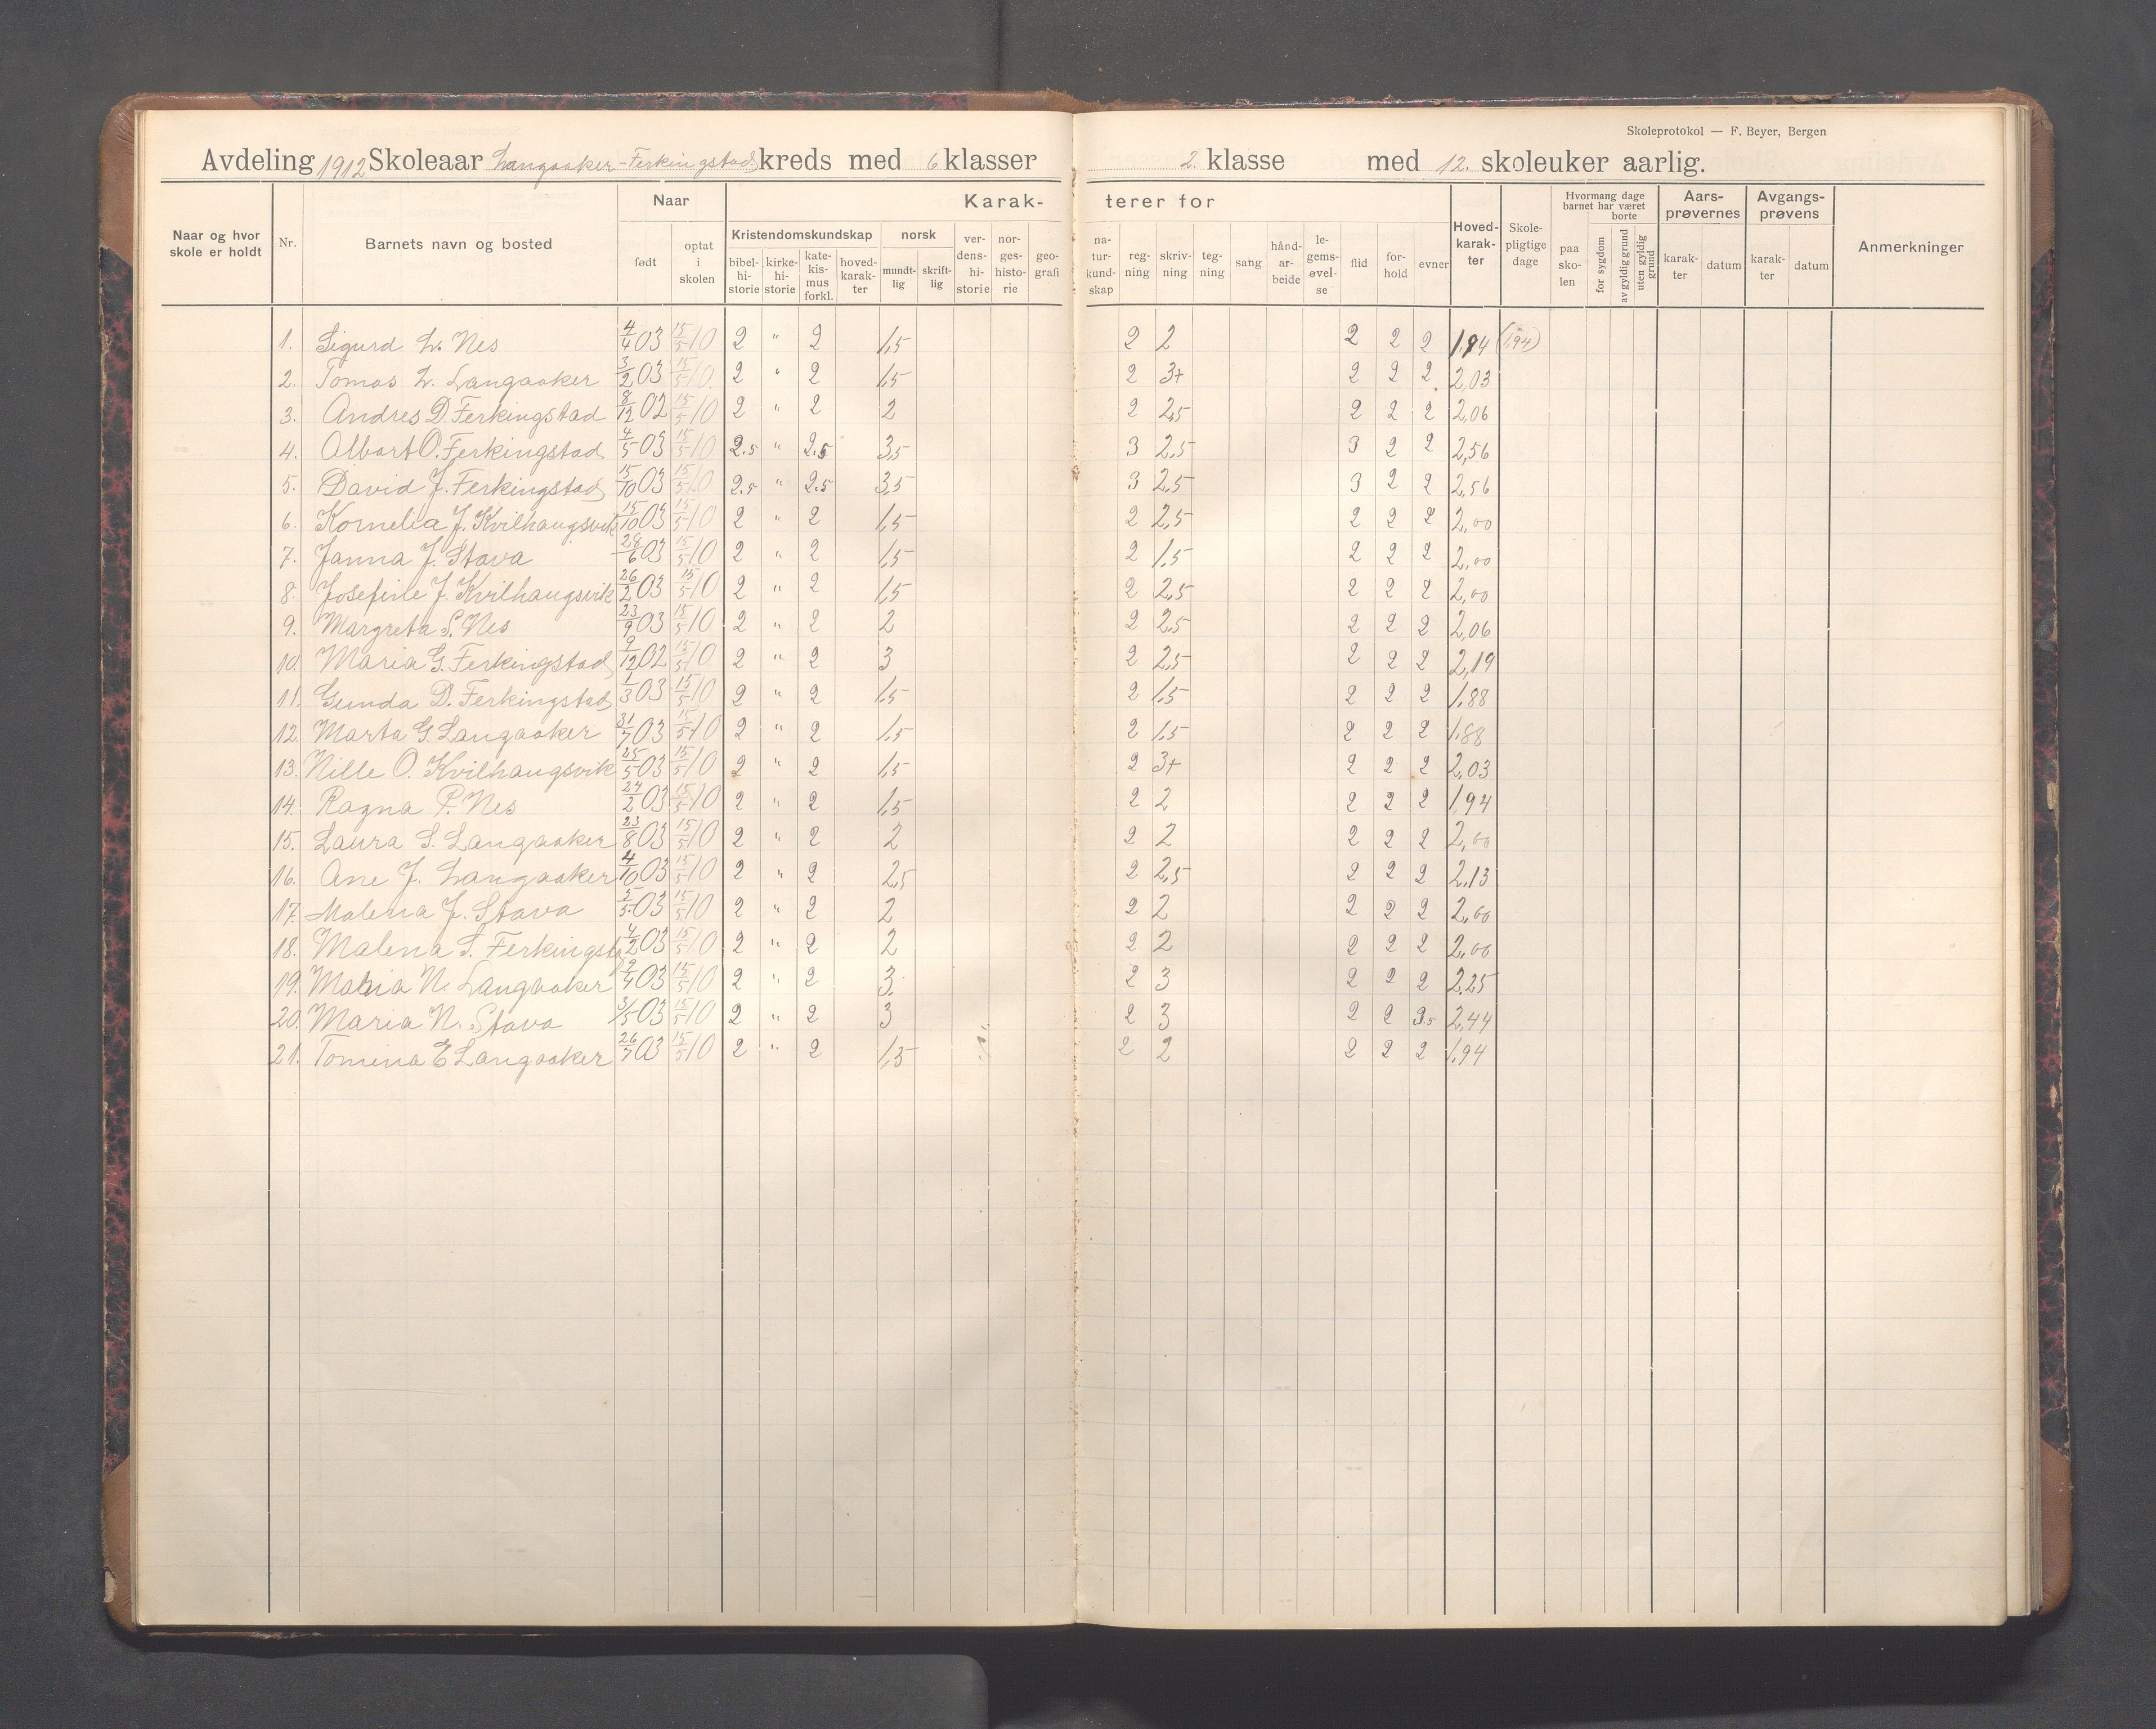 Skoleprotokol — F. Beyer, Bergen
Avdeling 1912 Skoleaar Langaaker-Ferkingstad kreds med 6 klasser 2. klasse med 12. skoleuker aarlig.
Naar og hvor skole er holdt Nr. Barnets navn og bosted Naar født optat i skolen Karak- terer for Kristendomskundskap bibel-hi-storie kirke-hi-storie kate-kis-mus forkl. hoved-karak-ter norsk mundt-lig skrift-lig ver-dens-hi-storie nor-ges-histo-rie geo-grafi na-tur-kund-skap reg-ning skriv-ning teg-ning sang hånd-ar-beide le-gems-øvel-se flid for-hold evner Hoved-karak-ter Skole-pligtige dage Hvormang dage barnet har været borte paa sko-len for sygdom av gyldig grund uten gyldig grund Aars-prøvernes karak-ter datum Avgangs-prøvens karak-ter datum Anmerkninger
1. Sigurd L. Nes 4/4 03 15/5 10 2 " 2 1,5 2 2 2 2 2 1,94 (1,94)
2. Tomas L. Langaaker 3/2 03 15/5 10 2 " 2 1,5 2 3+ 2 2 2 2,03
3. Andres D. Ferkingstad 8/12 02 15/5 10 2 " 2 2 2 2,5 2 2 2 2,06
4. Albart O. Ferkingstad 4/5 03 15/5 10 2.5 " 2.5 3,5 3 2,5 3 2 2 2,56
5. David J. Ferkingstad 15/10 03 15/5 10 2.5 " 2.5 3,5 3 2,5 3 2 2 2,56
6. Kornelia J. Kvilhaugsvik 15/10 03 15/5 10 2 " 2 1,5 2 2,5 2 2 2 2,00
7. Janna J. Stava 28/6 03 15/5 10 2 " 2 1,5 2 1,5 2 2 2 2,00
8. Josefine J. Kvilhaugsvik 26/2 03 15/5 10 2 " 2 1,5 2 2,5 2 2 2 2,00
9. Margreta S. Nes 23/9 03 15/5 10 2 " 2 2 2 2,5 2 2 2 2,06
10. Maria G. Ferkingstad 9/12 02 15/5 10 2 " 2 3 2 2,5 2 2 2 2,19
11. Gunda D. Ferkingstad 1/3 03 15/5 10 2 " 2 1,5 2 1,5 2 2 2 1,88
12. Marta G. Langaaker 31/7 03 15/5 10 2 " 2 1,5 2 1,5 2 2 2 1,88
13. Nille O. Kvilhaugsvik 25/5 03 15/5 10 2 " 2 1,5 2 3+ 2 2 2 2,03
14. Ragna P. Nes 24/2 03 15/5 10 2 " 2 1,5 2 2 2 2 2 1,94
15. Laura S. Langaaker 23/8 03 15/5 10 2 " 2 2 2 2 2 2 2 2,00
16. Ane J. Langaaker 4/10 03 15/5 10 2 " 2 2,5 2 2,5 2 2 2 2,13
17. Malena J. Stava 5/5 03 15/5 10 2 " 2 2 2 2 2 2 2 2,00
18. Malena S. Ferkingstad 4/2 03 15/5 10 2 " 2 2 2 2 2 2 2 2,00
19. Maria N. Langaaker 9/4 03 15/5 10 2 " 2 3 2 3 2 2 2 2,25
20. Maria N. Stava 3/5 03 15/5 10 2 " 2 3 2 3 2 2 3.5 2,44
21. Tomina E Langaaker 26/7 03 15/5 10 2 " 2 1,5 2 2 2 2 2 1,94